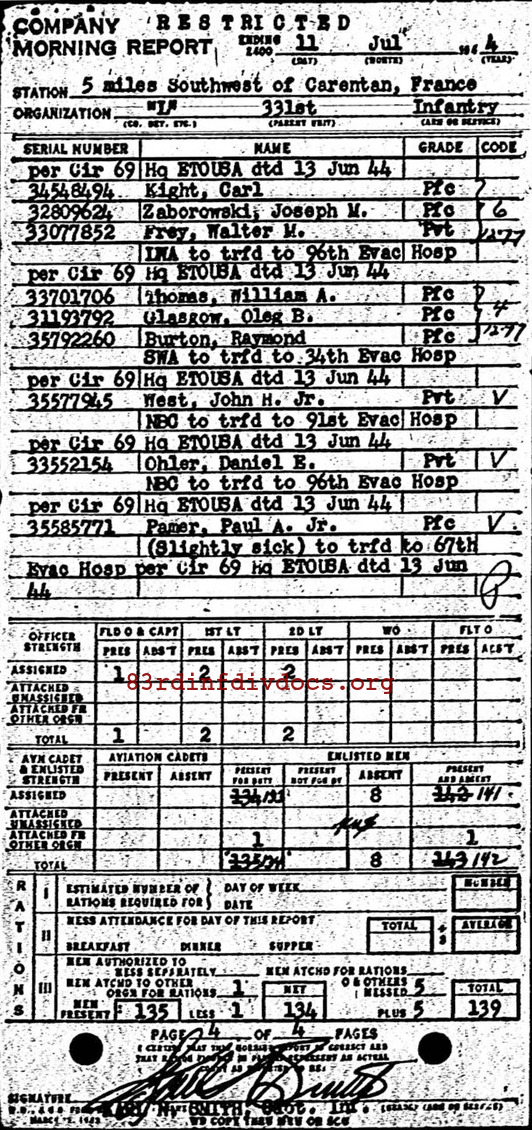 RESTRICTED
COMPANY
MORNING REPORT ENDING 2400 11 Jul 194 4
(DAY) (MONTH) (YEAR)
STATION 5 miles Southwest of Carentan, France
ORGANIZATION "L" 331st Infantry
(CO. DET. ETC.) (PARENT UNIT) (ARM OR SERVICE)
SERIAL NUMBER NAME GRADE CODE
per Cir 69 Hq ETOUSA dtd 13 Jun 44
34548494 Kight, Carl Pfc
32809624 Zaborowski, Joseph M. Pfc 6
33077852 Frey, Walter M. Pvt 1277
LWA to trfd to 96th Evac Hosp
per Cir 69 Hq ETOUSA dtd 13 Jun 44
33701706 Thomas, William A. Pfc
31193792 Glasgow, Oleg B. Pfc 4
35792260 Burton, Raymond Pfc 1277
SWA to trfd to 34th Evac Hosp
per Cir 69 Hq ETOUSA dtd 13 Jun 44
35577945 West, John H. Jr. Pvt V
NBC to trfd to 91st Evac Hosp
per Cir 69 Hq ETOUSA dtd 13 Jun 44
33552154 Ohler, Daniel E. Pvt V
NBC to trfd to 96th Evac Hosp
per Cir 69 Hq ETOUSA dtd 13 Jun 44
35585771 Pamer, Paul A. Jr. Pfc V
(Slightly sick) to trfd to 67th
Evac Hosp per Cir 69 Hq ETOUSA dtd 13 Jun
44
OFFICER STRENGTH FLD O & CAPT 1ST LT 2D LT WO FLT O
PRES ABS'T PRES ABS'T PRES ABS'T PRES ABS'T PRES ABS'T
ASSIGNED 1 2 2
83rdinfdivdocs.org
ATTACHED UNASSIGNED
ATTACHED FR OTHER ORGN
TOTAL 1 2 2
AVN CADET & ENLISTED STRENGTH AVIATION CADETS ENLISTED MEN
PRESENT ABSENT PRESENT FOR DUTY PRESENT NOT FOR DY ABSENT PRESENT AND ABSENT
ASSIGNED 134 133 8 142 141
ATTACHED UNASSIGNED
ATTACHED FR OTHER ORGN 1 1
TOTAL 135 134 8 143 142
RATIONS
I ESTIMATED NUMBER OF RATIONS REQUIRED FOR DAY OF WEEK DATE NUMBER
II MESS ATTENDANCE FOR DAY OF THIS REPORT TOTAL ÷ 3 AVERAGE
BREAKFAST DINNER SUPPER
III MEN AUTHORIZED TO MESS SEPARATELY MEN ATCHD FOR RATIONS
MEN ATCHD TO OTHER ORGN FOR RATIONS 1 NET O & OTHERS MESSED 5 TOTAL
MEN PRESENT 135 LESS 1 134 PLUS 5 139
PAGE 4 OF 4 PAGES
I CERTIFY THAT THIS MORNING REPORT IS CORRECT AND
SIGNATURE
N. SMITH, Capt. Inf.